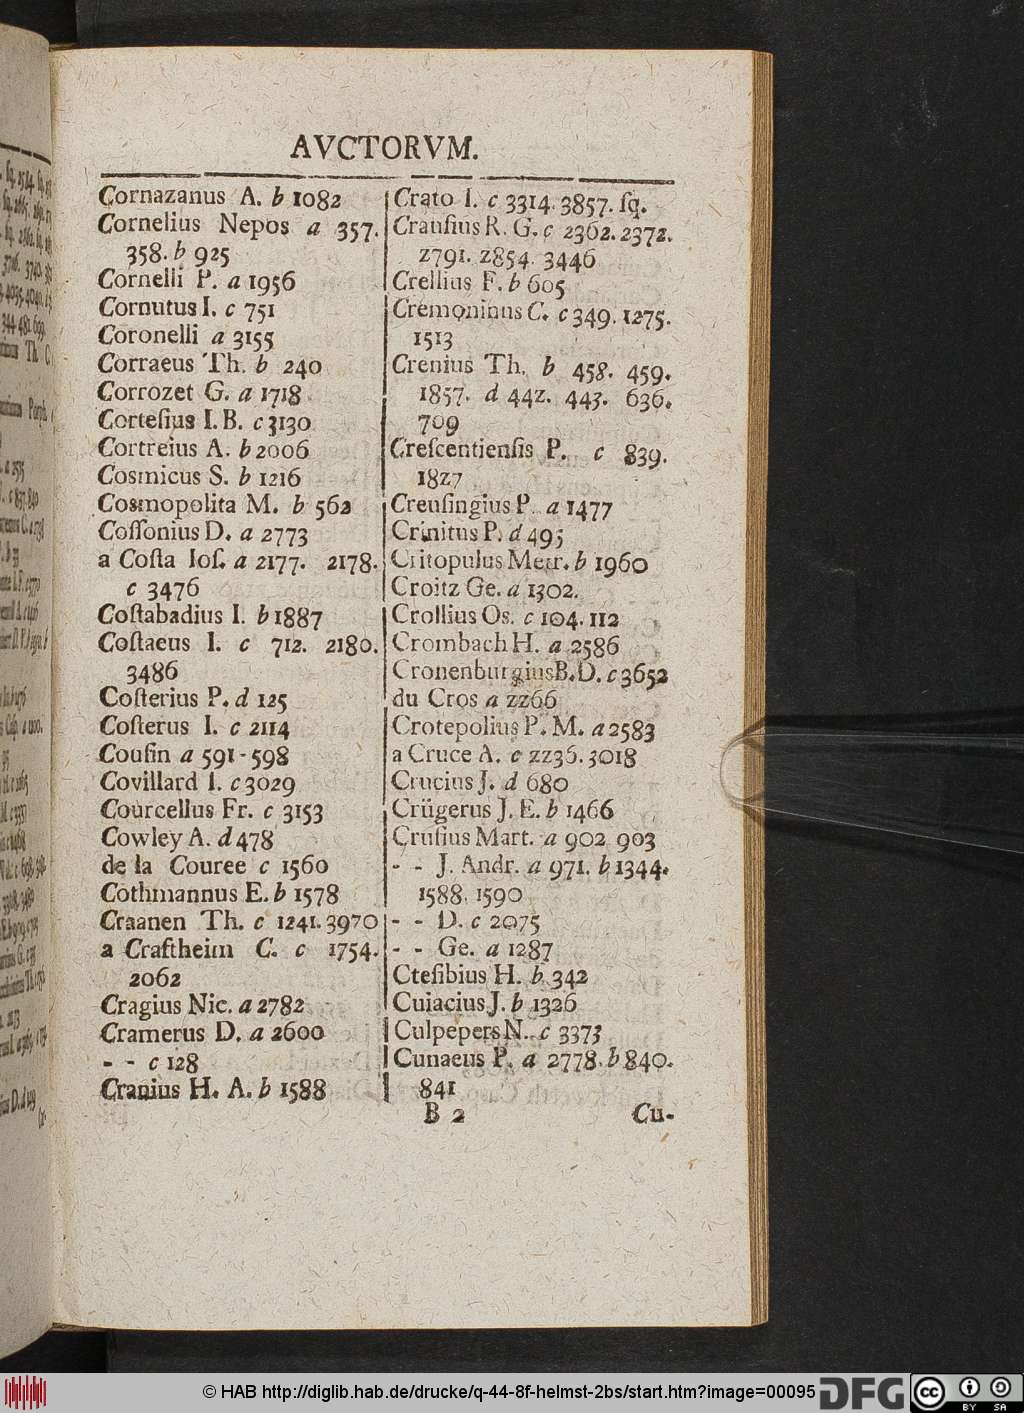 AVCTORVM.
Cornazanus A. b 1082
Cornelius Nepos a 357.
358. b 925
Cornelli P. a 1956
Cornutus I. c 751
Coronelli a 3155
Corraeus Th. b 240
Corrozet G. a 1718
Cortesius I. B. c 3130
Cortreius A. b 2006
Cosmicus S. b 1216
Cosmopolita M. b 562
Cossonius D. a 2773
a Costa Ios. a 2177. 2178.
c 3476
Costabadius I. b 1887
Costaeus I. c 712. 2180.
3486
Costerius P. d 125
Costerus I. c 2114
Cousin a 591-598
Covillard I. c 3029
Courcellus Fr. c 3153
Cowley A. d 478
de la Couree c 1560
Cothmannus E. b 1578
Craanen Th. c 1241. 3970
a Craftheim C. c 1754.
2062
Cragius Nic. a 2782
Cramerus D. a 2600
- - c 128
Cranius H. A. b 1588
Crato I. c 3314. 3857. sq.
Crausius R. G. c 2362. 2372.
2791. 2854. 3446
Crellius F. b 605
Cremoninus C. c 349. 1275.
1513
Crenius Th. b 458. 459.
1857. d 442. 443. 636.
709
Crescentiensis P. c 839.
1827
Creusingius P. a 1477
Crinitus P. d 495
Critopulus Metr. b 1960
Croitz Ge. a 1302.
Crollius Os. c 104. 112
Crombach H. a 2586
Cronenburgius B. D. c 3652
du Cros a 2266
Crotepolius P. M. a 2583
a Cruce A. c 2236. 3018
Crucius J. d 680
Crügerus J. E. b 1466
Crusius Mart. a 902 903
- - J. Andr. a 971. b 1344.
1588. 1590
- - D. c 2075
- - Ge. a 1287
Ctesibius H. b 342
Cuiacius J. b 1326
Culpepers N. c 3373
Cunaeus P. a 2778. b 840.
841
B 2 Cu-
© HAB http://diglib.hab.de/drucke/q-44-8f-helmst-2bs/start.htm?image=00095 DFG cc BY SA